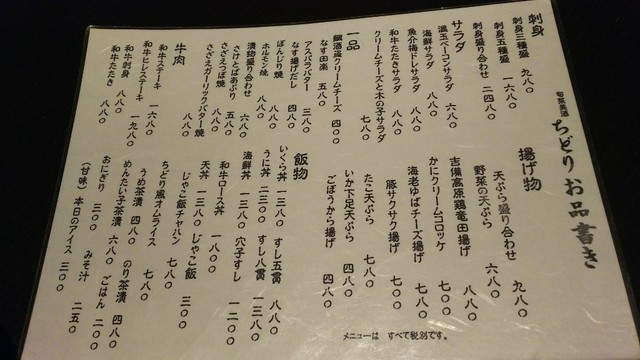 旬菜美酒 ちどり お品書き
刺身
刺身三種盛 九八〇
刺身五種盛 一六八〇
刺身盛り合わせ 二四八〇
サラダ
温玉ベーコンサラダ 六八〇
海鮮サラダ 八八〇
魚介梅ドレサラダ 八八〇
和牛たたきサラダ 八八〇
クリームチーズと木の子サラダ 七八〇
一品
酒盗クリームチーズ 四〇〇
なす田楽 五八〇
アスパラバター 三八〇
なす揚げだし 四八〇
ぼんじり焼 八八〇
ホルモン焼 八八〇
漬物盛り合わせ 六八〇
さけとばあぶり 五五〇
さざえつぼ焼 八八〇
さざえガーリックバター焼 八八〇
牛肉
和牛ステーキ 一六八〇
和牛ヒレステーキ 一九八〇
和牛刺身 八八〇
和牛たたき 八八〇
揚げ物
天ぷら盛り合わせ 九八〇
野菜の天ぷら 六八〇
吉備高原鶏竜田揚げ 八八〇
かにクリームコロッケ 七八〇
海老ゆばチーズ揚げ 七八〇
豚サクサク揚げ 七〇〇
たこ天ぷら 七八〇
いか下足天ぷら 四八〇
ごぼうから揚げ 四八〇
飯物
いくら丼 一三八〇 すし五貫 八八〇
うに丼 二三〇〇 すし八貫 一三八〇
海鮮丼 一三八〇 穴子すし 一二〇〇
和牛ロース丼 一八〇〇
天丼 一三八〇 じゃこ飯 三〇〇
じゃこ飯チャハン 七八〇
ちどり風オムライス 七八〇
うめ茶漬 四八〇 のり茶漬 四八〇
めんたい子茶漬 六八〇 ごはん 二〇〇
おにぎり 三〇〇 みそ汁 二五〇
(甘味) 本日のアイス 三〇〇
メニューは すべて税別です。